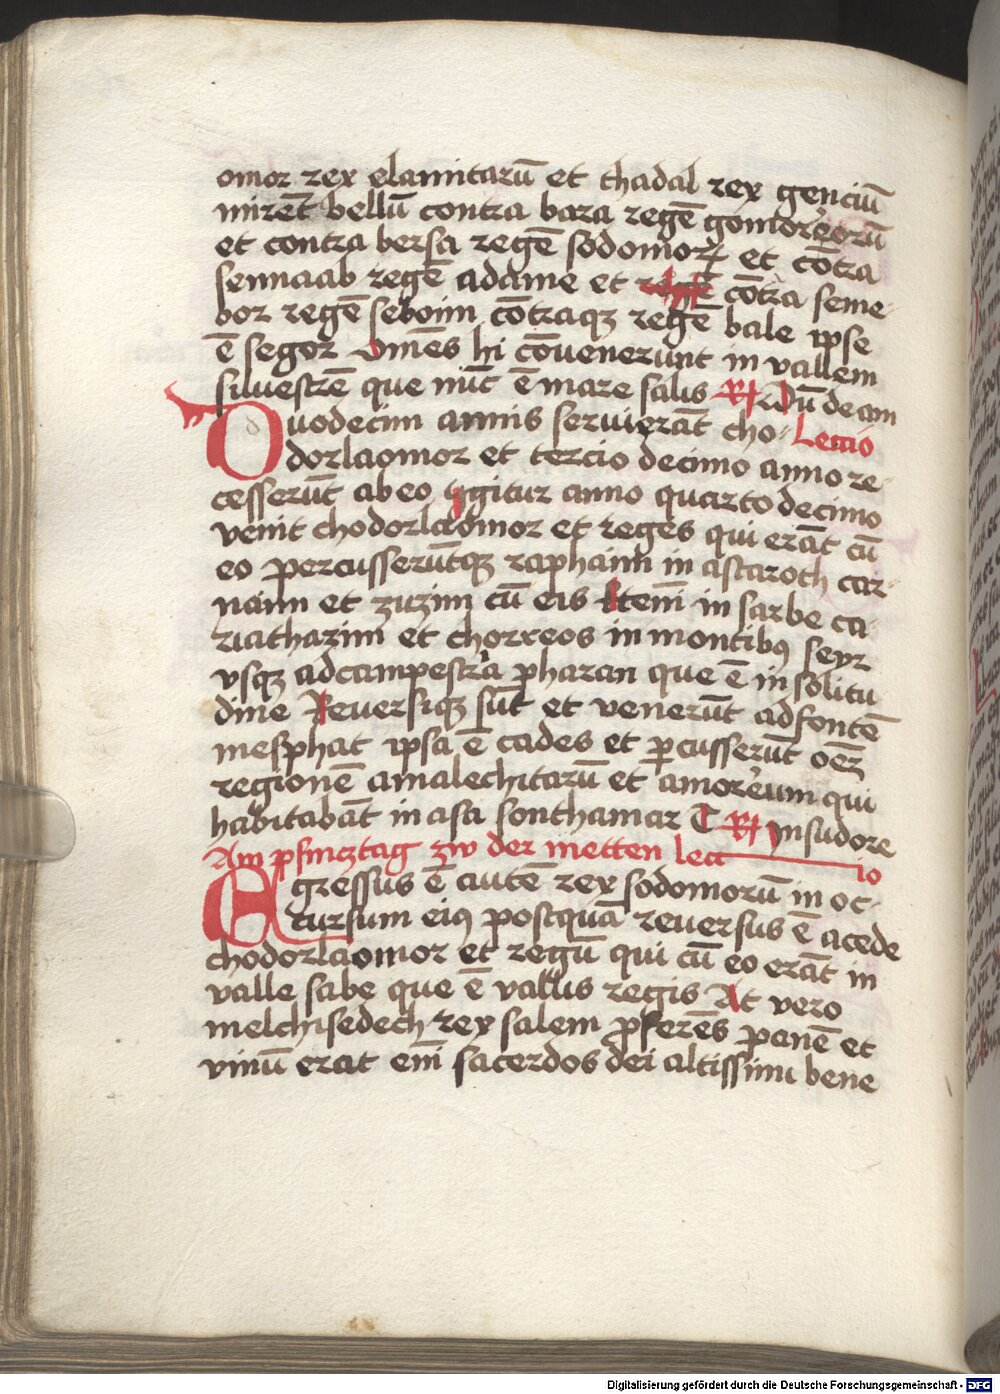 omor rex elamitarū et thadal rex genciū
mirēt bellū contra bara regē gomorreorū
et contra bersa regē sodomoꝝ et cōtra
sennaab regē adame et cōtra seme-
bor regē seboim cōtraqꝫ regē bale ipse
ē segor Omēs hi cōvenerunt in vallem
silvestrē que nūc ē mare salis ℟ Dū deam
Duodecim annis servierāt cho- Leccio
dorlaomor et tercio decimo anno re-
cesserūt ab eo igitur anno quarto decimo
venit chodorlaomor et reges qui erāt cū
eo percusserūtqꝫ raphaim in astaroth car-
naim et zuzim cū eis Et emi in sarbe ca-
riathazim et chorreos in montibꝰ seyr
vsqꝫ ad campestra pharan que ē in solitu
dine Reversiqꝫ sūt et venerūt ad fontē
mesphat ipsa ē cades et ꝑcusserūt oēz
regionē amalechitarū et amoreum qui
habitabāt in asa sonthamar T ℟ In sudore
Am pfincztag zw der metten lectio
Egressus ē autē rex sodomorū in oc-
cursum eiꝰ postquā reversus ē a cede
chodorlaomor et regū qui cū eo erāt in
valle sabe que ē vallis regis At vero
melchisedech rex salem ꝓferēs panē et
vinū erat em̄ sacerdos dei altissimi bene
Digitalisierung gefördert durch die Deutsche Forschungsgemeinschaft - DFG